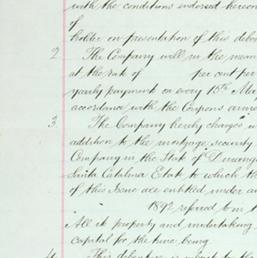 with the conditions endorsed hereon
of
holder on presentation of this deben
2 The Company will in the mean
at the rate of per cent per
yearly payment on every 15th May
accordance with the Coupons annex
3 The Company hereby charges w
addition to the mortgage security
Company in the State of Durang
Santa Catalina Estate to which th
of this Issue are entitled under a
1892 referred to in t
All its property and undertaking
capital for the time being
This debenture is